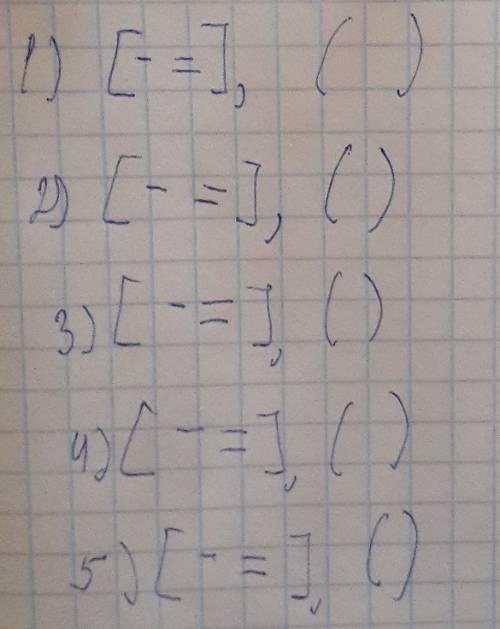 1) [- =], ( )
2) [- =], ( )
3) [- =], ( )
4) [- =], ( )
5) [- =], ( )